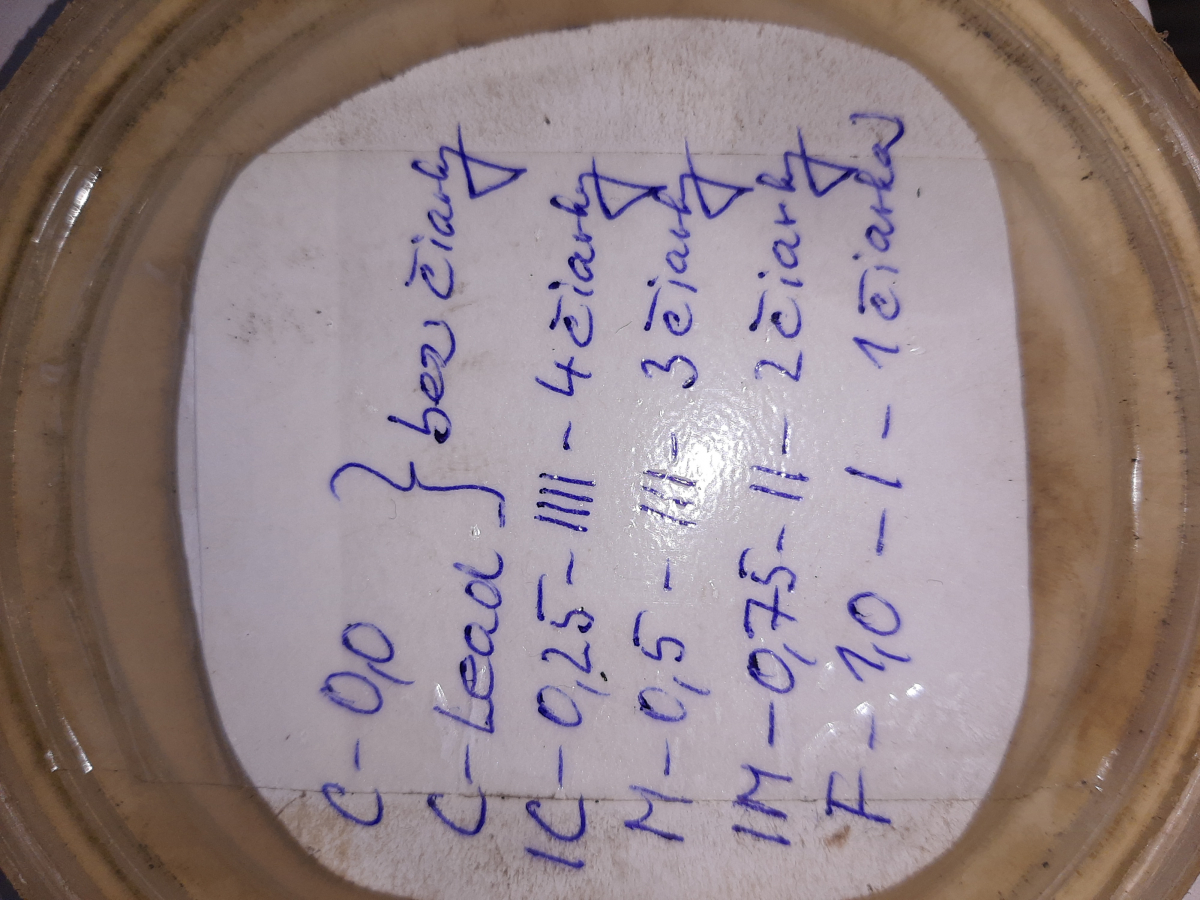 C - 0,0
C - Lead - } bez čiarky
IC - 0,25 - IIII - 4 čiarky
M - 0,5 - III - 3 čiarky
IM - 0,75 - II - 2 čiarky
F - 1,0 - I - 1 čiarka